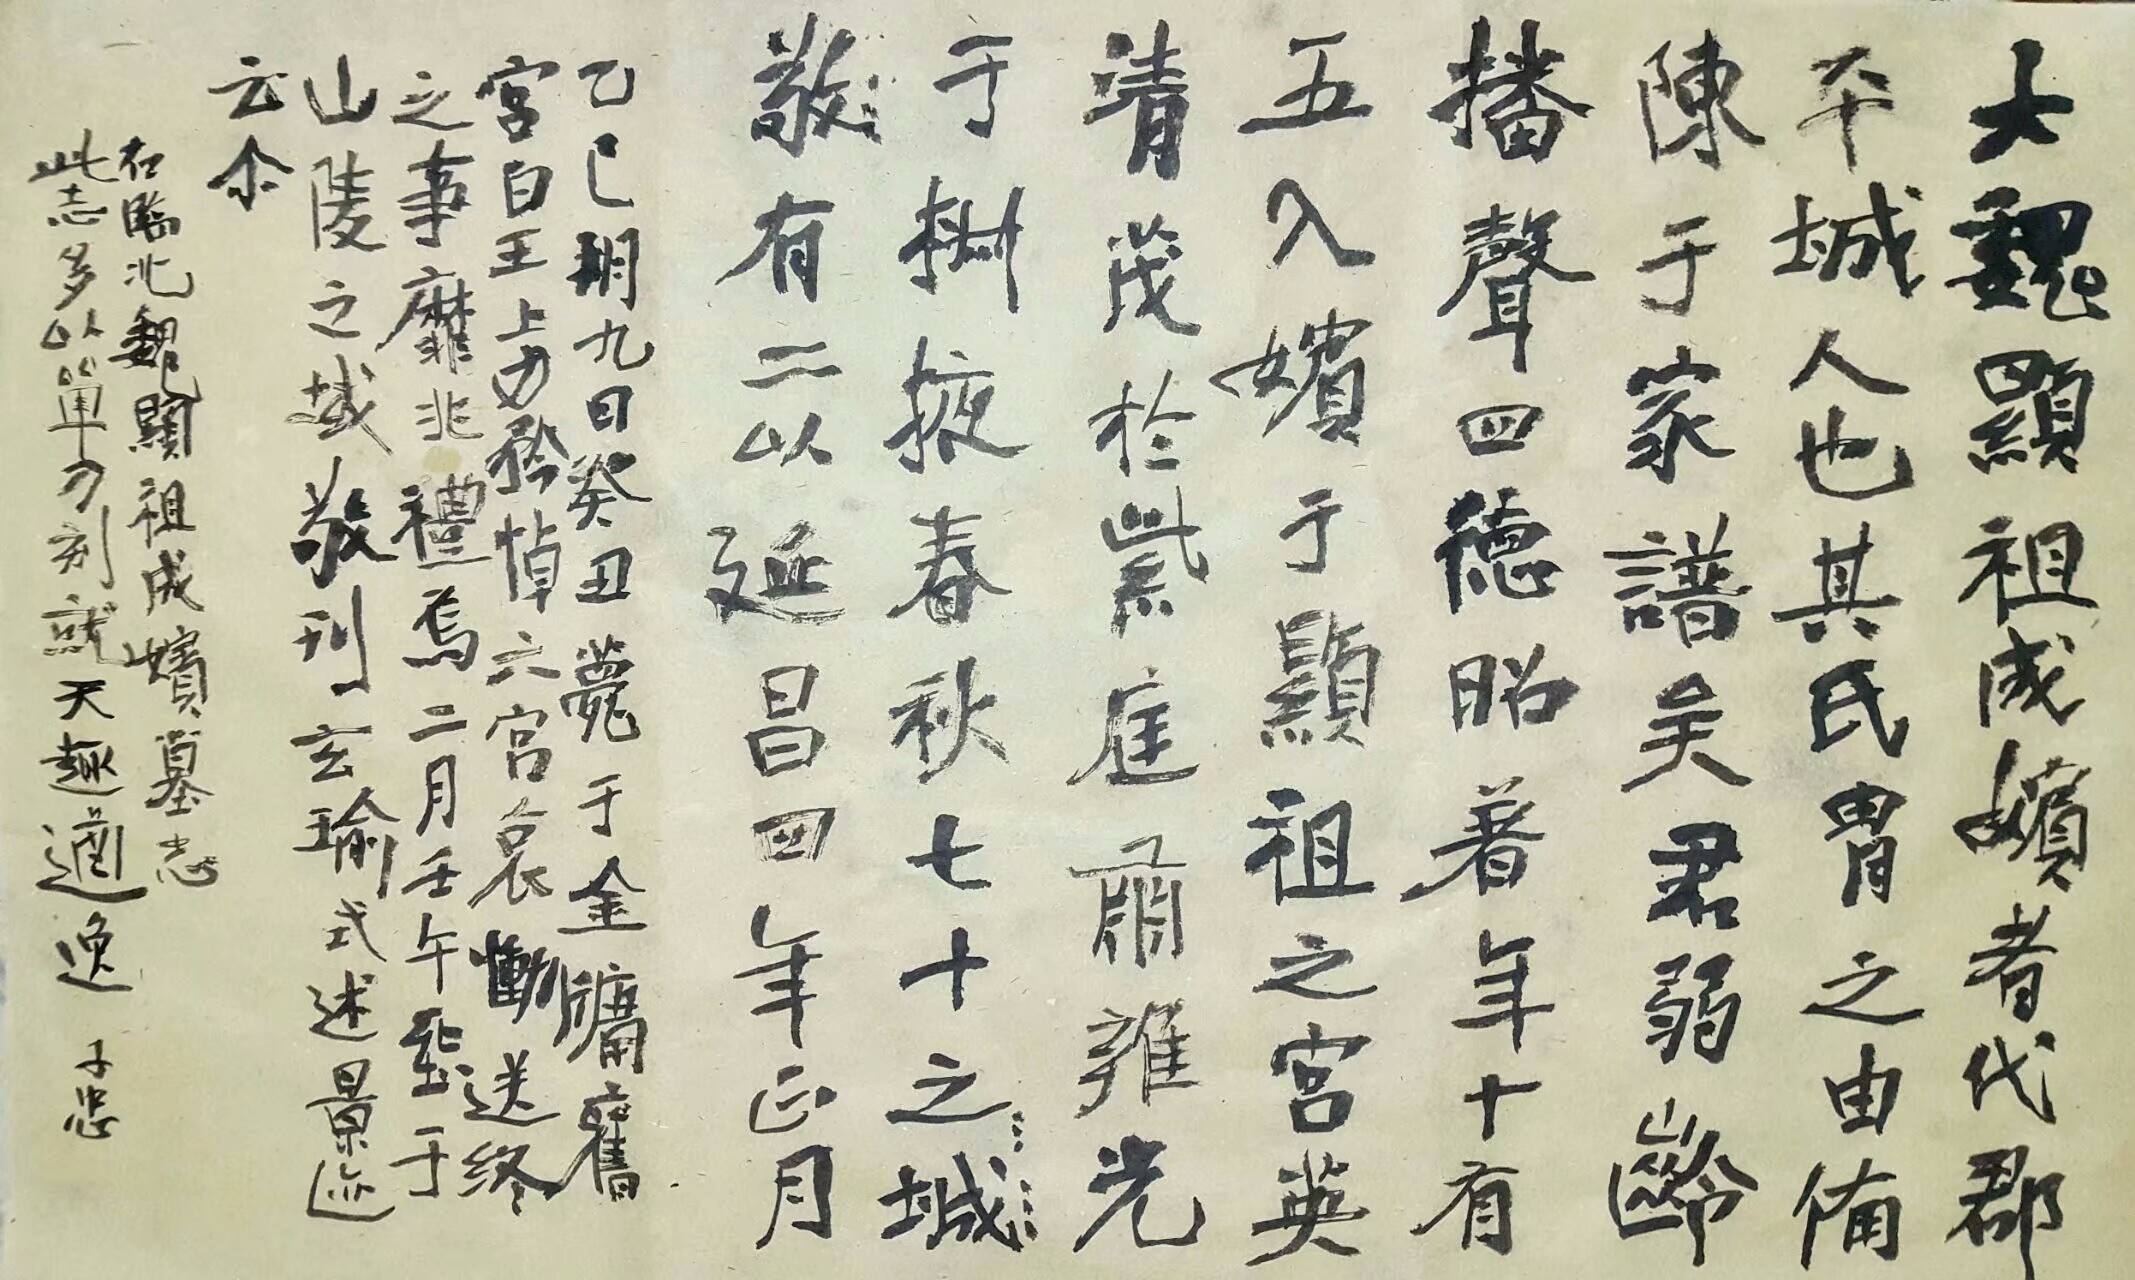 大魏顯祖成嬪者代郡
平城人也其氏冑之由俻
陳于家譜矣君弱齡
播聲四德昭著年十有
五入嬪于顯祖之宮英
清茂於紫庭肅雍光
于掖春秋七十之城
敬有二以延昌四年正月
乙巳朔九日癸丑薨于金墉舊
宮白王上矜悼六宮哀慟送終
之事靡非禮焉二月壬午窆于
山陵之域敬刊玄瑜式述景迹
云尒
右臨北魏顯祖成嬪墓志
此志多以單刀刻就天趣適逸